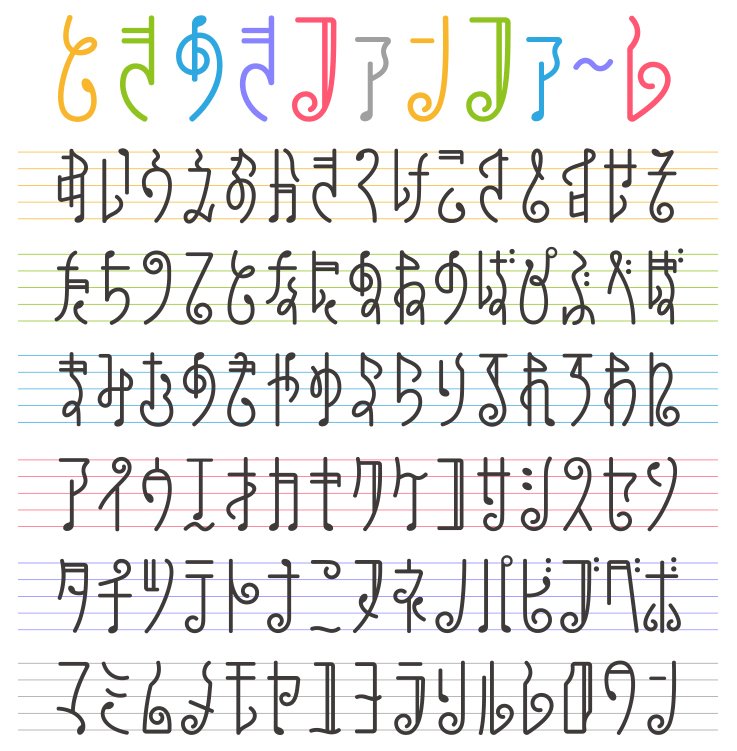 ときめきファンファ〜レ
あいうえおかきくけこさしすせそ
たちつてとなにぬねのばぴぶべぼ
まみむめもやゆよらりるれろわん
アイウエオカキクケコサシスセソ
タチツテトナニヌネノパビブベボ
マミムメモヤユヨラリルレロワン